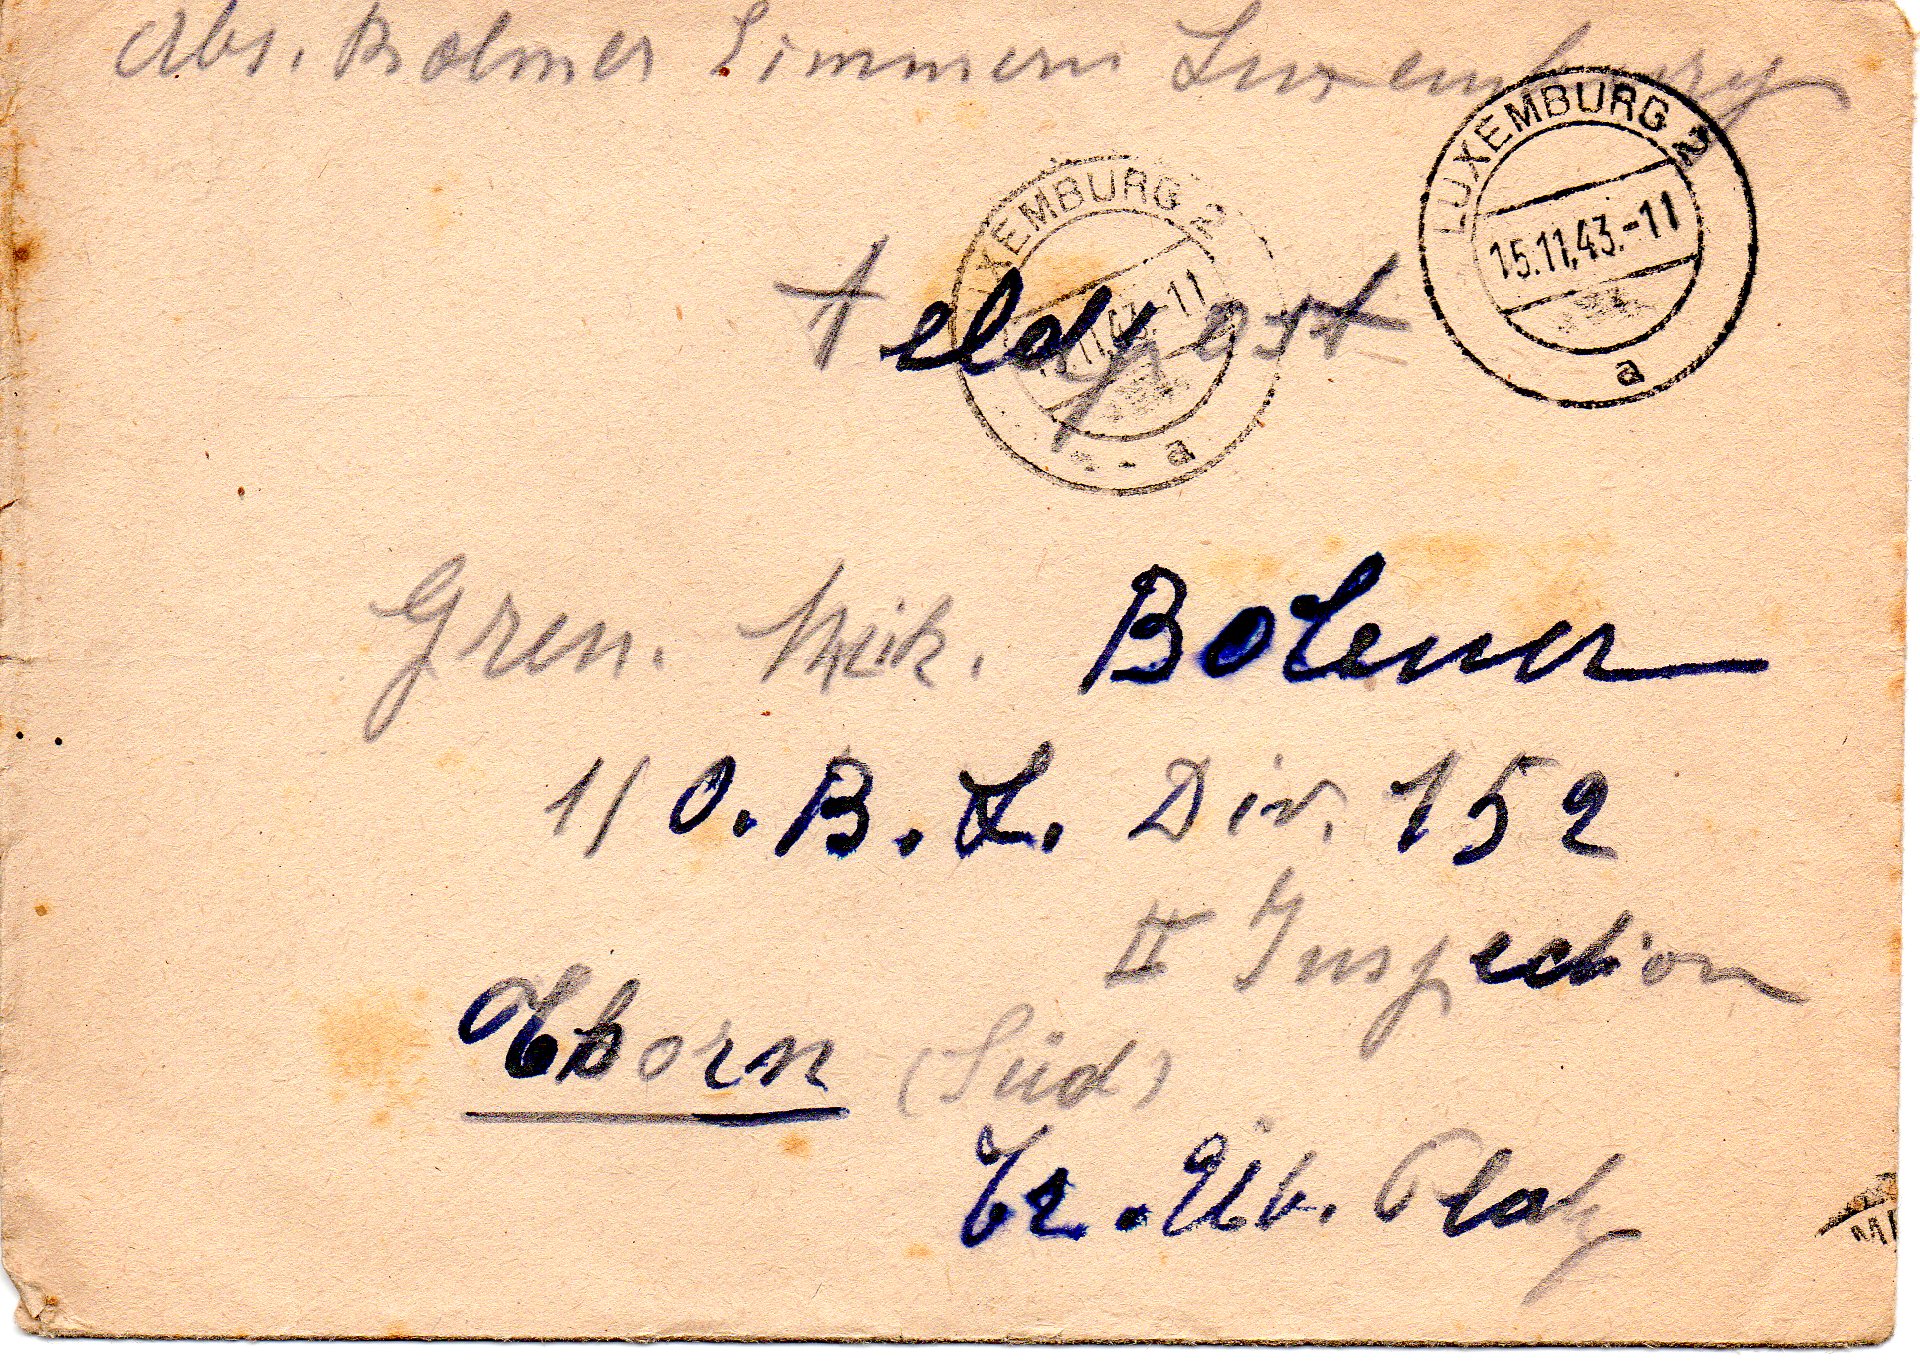 Abs. Bolmer Simmern Luxemburg
LUXEMBURG 2
15.11.43.-11
a
LUXEMBURG 2
15.11.43.-11
a
Feldpost
Gren. Nik. Bolmer
1/ O.B.L. Div. 152
II Inspection
Thorn (Süd)
Tr. Üb. Platz